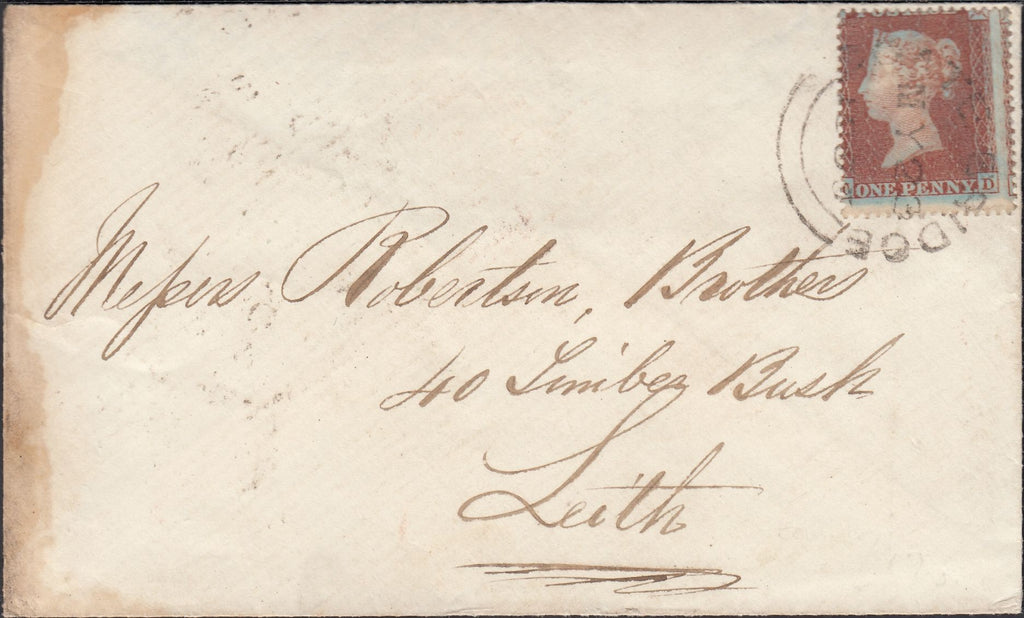 ONE PENNY D
Messrs Robertson, Brothers
40 Timber Bush
Leith